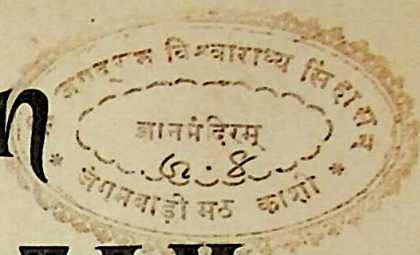 जगद्गुरु विश्वाराध्य सिंहासन
ज्ञानमंदिरम्
जंगमवाड़ी मठ काशी
n